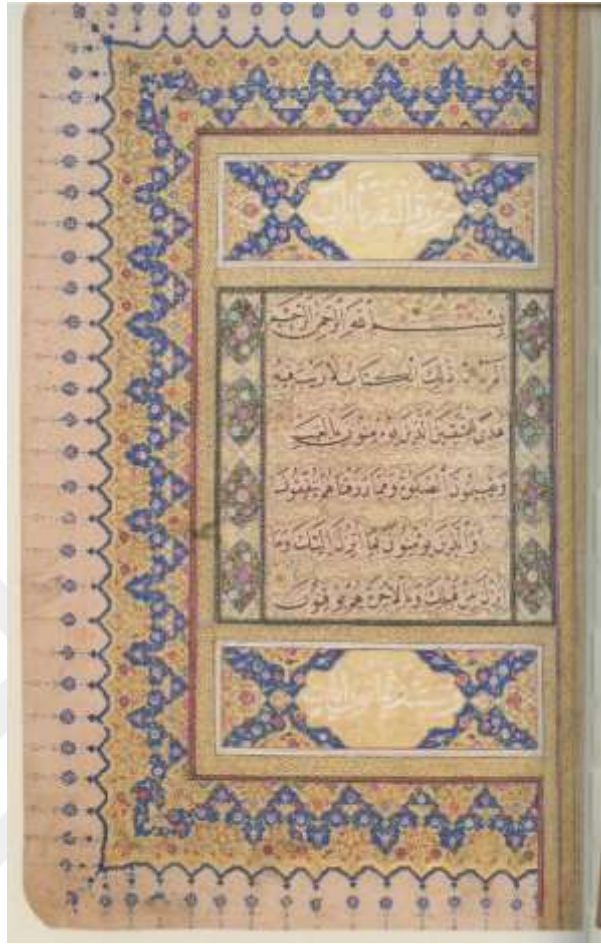 سورة البقرة
بسم الله الرحمن الرحيم
الم ذلك الكتاب لا ريب فيه
هدى للمتقين الذين يؤمنون بالغيب
ويقيمون الصلوة ومما رزقناهم ينفقون
والذين يؤمنون بما انزل اليك وما
انزل من قبلك وبالاخرة هم يوقنون